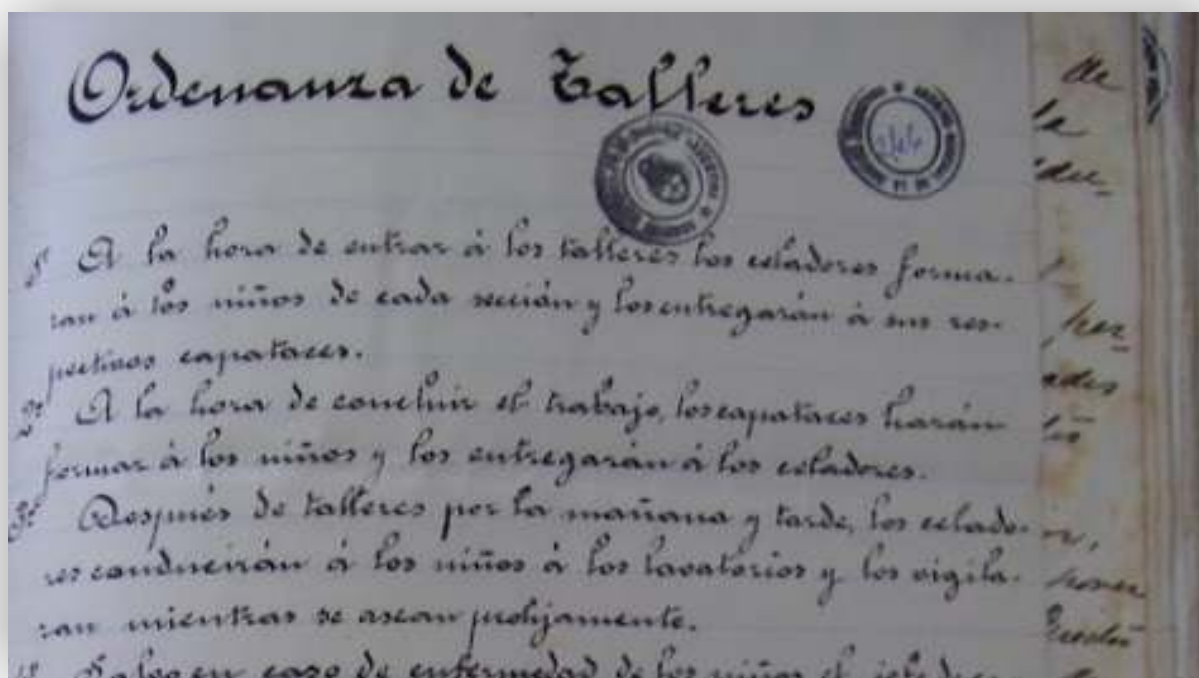 Ordenanza de Talleres
1º A la hora de entrar á los talleres los celadores forma-
ran á los niños de cada sección y los entregarán á sus res-
pectivos capataces.
2º A la hora de concluir el trabajo, los capataces harán
formar á los niños y los entregarán á los celadores.
3º Después de talleres por la mañana y tarde, los celado-
res conducirán á los niños á los lavatorios y los vigila-
ran mientras se asean prolijamente.
4º Salvo en caso de enfermedad de los niños el
de